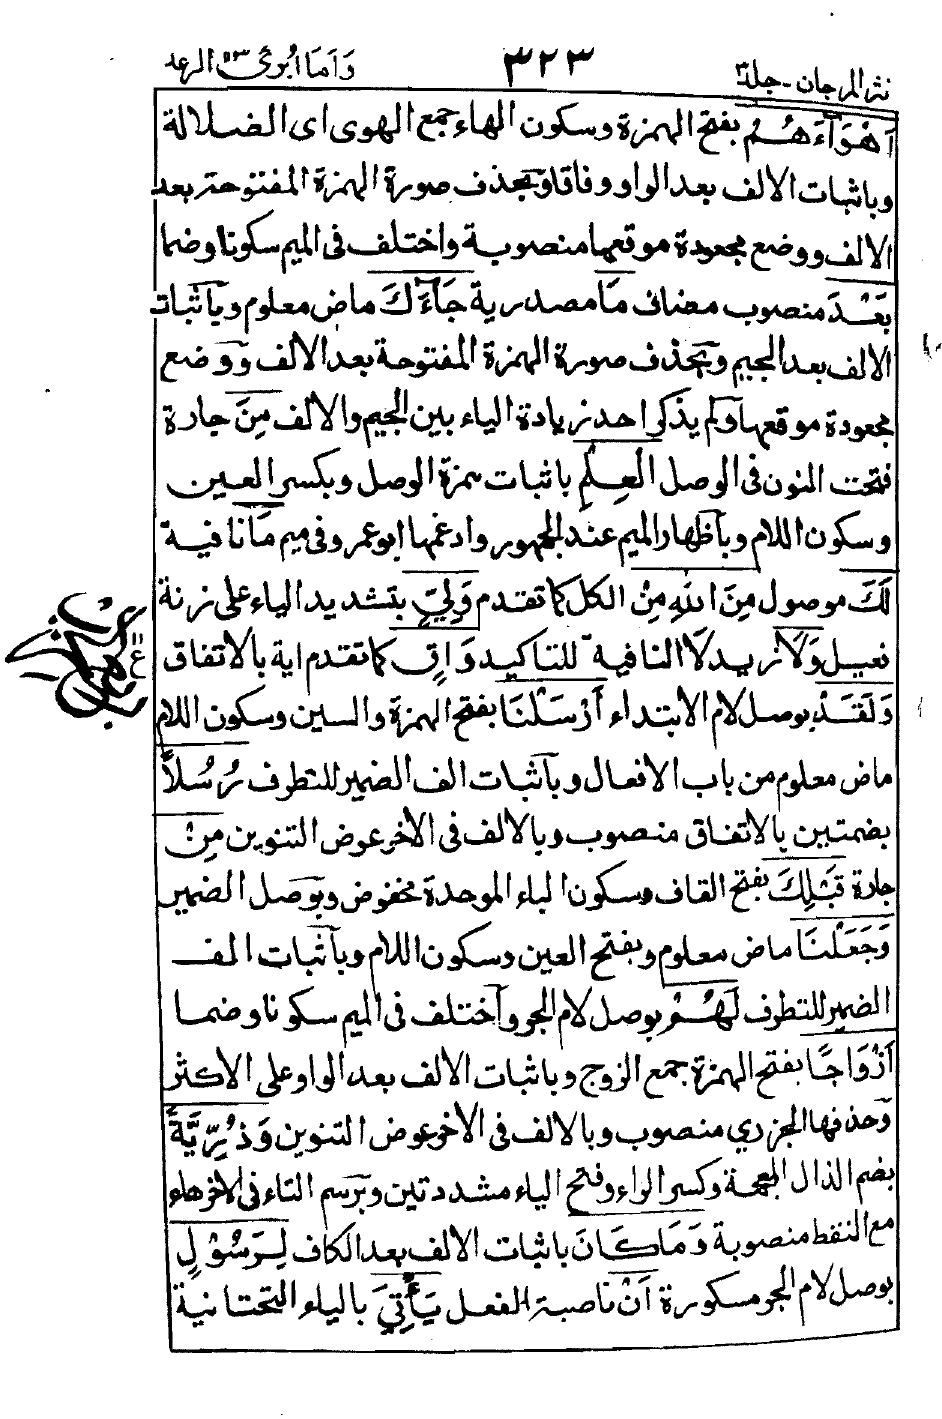 نثر المرجان - جلد٣ ٣٢٣ وَاَمَا اُبرئ ١٣ الرعد
اَهْوَآءَهُمْ بفتح الهمزة وسكون الهاء جمع الهوى اى الضلالة
وباثبات الالف بعد الواو وفاقا وبحذف صورة الهمزة المفتوحة بعد
الالف ووضع مجعودة موقعها منصوبة واختلف فى الميم سكونا وضما
بَعْدَ منصوب مضاف مَا مصدرية جَآءَكَ ماض معلوم وباثبات
الالف بعد الجيم وبحذف صورة الهمزة المفتوحة بعد الالف ووضع
مجعودة موقعها ولم يذكر احد زيادة الياء بين الجيم والالف مِنَ جارة
فتحت النون فى الوصل الْعِلْمِ باثبات همزة الوصل وبكسر العين
وسكون اللام وباظهار الميم عند الجمهور وادغمها ابو عمرو فى ميم مَا نافية
لَكَ موصول مِنَ اللّٰهِ مِنْ الكل كما تقدم وَلِيٍّ بتشديد الياء على زنة
نعيل وَلَا زيد لا النافية للتاكيد وَاقٍ كما تقدم اية بالاتفاق
وَلَقَدْ بوصل لام الابتداء اَرْسَلْنَا بفتح الهمزة والسين وسكون اللام
ماض معلوم من باب الافعال وباثبات الف الضمير للتطرف رُسُلًا
بضمتين بالاتفاق منصوب وبالالف فى الاخر عوض التنوين مِنْ
جارة قَبْلِكَ بفتح القاف وسكون الباء الموحدة مخفوض وبوصل الضمير
وَجَعَلْنَا ماض معلوم وبفتح العين وسكون اللام وباثبات الف
الضمير للتطرف لَهُمْ بوصل لام الجر واختلف فى الميم سكونا وضما
اَزْوَاجًا بفتح الهمزة جمع الزوج وباثبات الالف بعد الواو على الاكثر
وحذفها الجزري منصوب وبالالف فى الاخر عوض التنوين وَذُرِّيَّةً
بضم الذال المعجمة وكسر الراء وفتح الياء مشددتين وبرسم التاء فى الاخر هاء
مع النقط منصوبة وَمَا كَانَ باثبات الالف بعد الكاف لِرَسُوْلٍ
بوصل لام الجر مكسورة اَنْ ناصبة الفعل يَأْتِيَ بالياء التحتانية